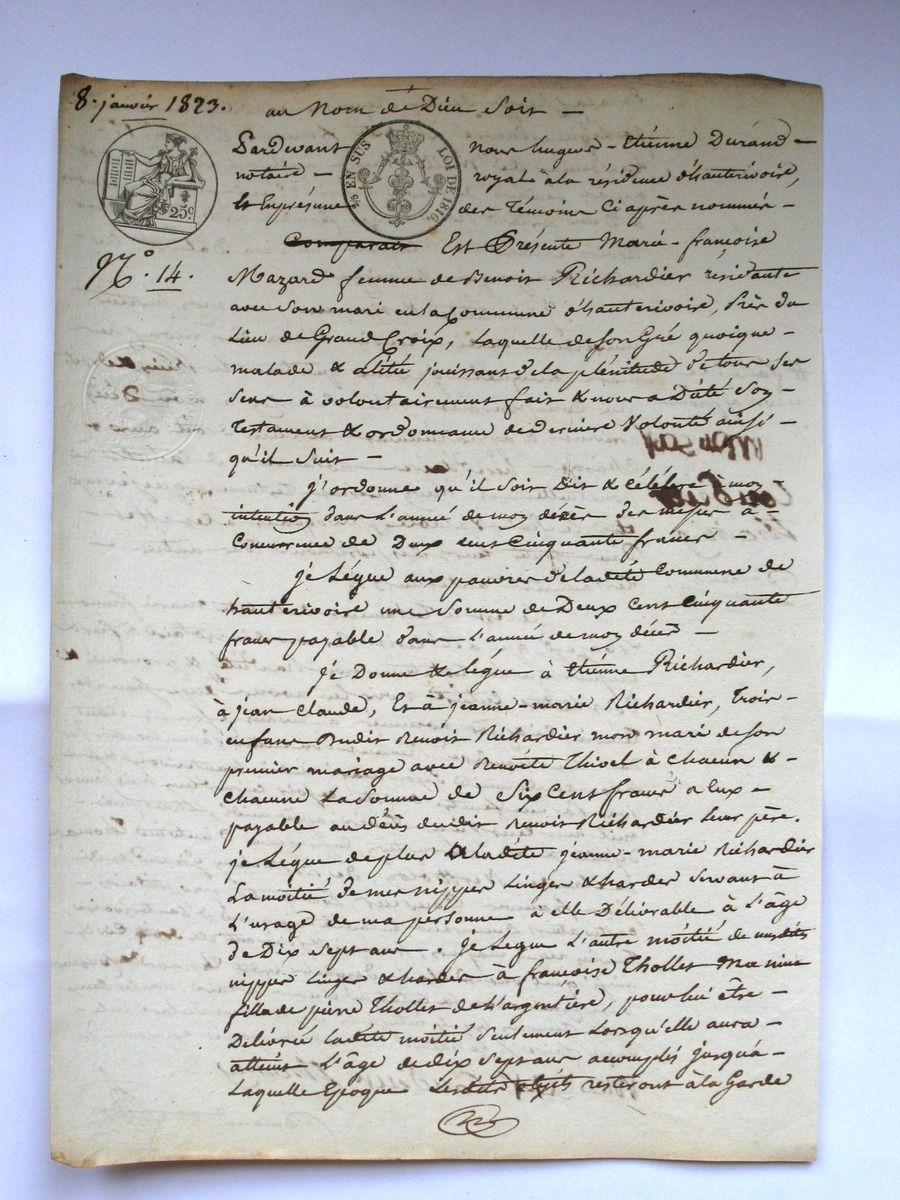 8. janvier 1823.
au Nom de Dieu soit —
25 c.
¼ EN SUS LOI DE 1816
Pardevant nous hugues - Etiénne Durand -
notaire - royal à la résidence d'hauterivoire,
& En présence des Témoins Ci après nommés -
N°. 14.
Comparait Est Présente Marie - françoise
Mazard femme de Benoit Richardier résidante
avec son mari en la Commune d'hauterivoire, Près du
Lieu de Grand Croix, Laquelle de son Gré quoique -
malade & alitée jouissant de la plénitude de tous ses
sens à volontairement fait & nous a Dicté son -
Testament & ordonnance de derniere Volonté ainsi -
qu'il suit -
j'ordonne qu'il soit Dit & célébré à mon
intention dans L'année de mon décès des messes à -
Concurrence de Deux cent Cinquante francs -
je Légue aux pauvres de ladite Commune de
hauterivoire une Somme de Deux Cent Cinquante
francs payable dans L'année de mon décès -
je Donne & légue à Etiénne Richardier,
à jean Claude, Et à jeanne - marie Richardier, Trois -
enfans dudit Benoit Richardier mon mari de son
premier mariage avec Benoite Thivel à chacun & -
chacune La Somme de Six Cent francs a Eux -
payable au décès dudit Benoit Richardier leur père.
je Légue de plus à ladite jeanne - marie Richardier
La moitié de mes nippes Linges & hardes servant à
L'usage de ma personne à elle Délivrable à L'âge
de Dix Sept ans. je Légue L'autre moitié de mesdites
nippes Linges & hardes à françoise Thollet Ma niéce
fille de pierre Thollet de L'argentiére, pour lui être -
Délivrée ladite moitié seulement Lorsqu'elle aura -
atteint L'âge de dix Sept ans accomplis jusqu'à -
Laquelle Epoque Lesdits objets resteront à la Garde